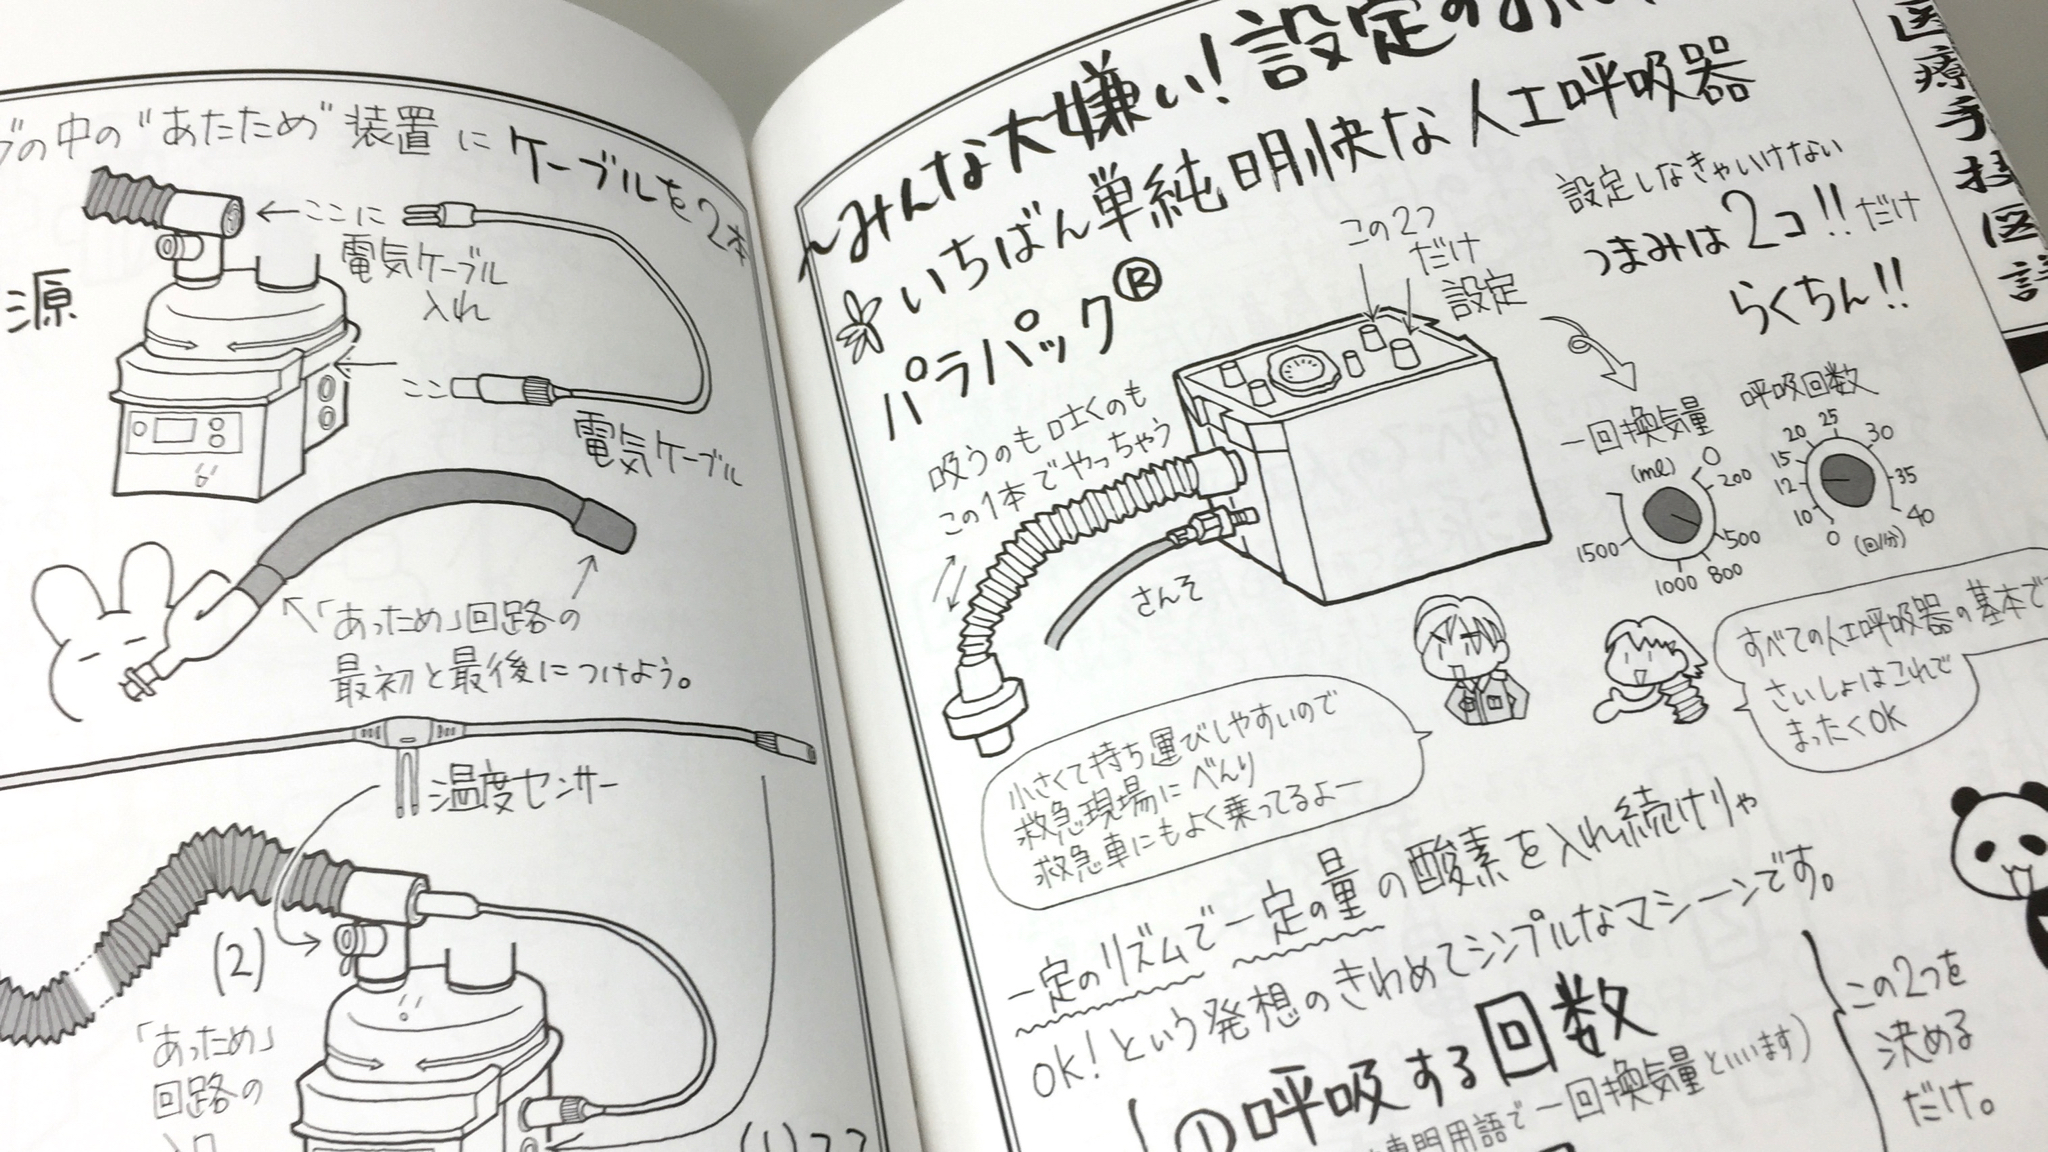 の中の"あたため"装置にケーブルを2本
源
←ここに
電気ケーブル
入れ
ここ
電気ケーブル
「あっため」回路の
最初と最後につけよう。
温度センサー
(2)
「あっため」
回路の
入口
(1)
～みんな大嫌い!設定の
いちばん単純明快な人工呼吸器
パラパック®
この2つ
だけ
設定
設定しなきゃいけない
つまみは2コ!!だけ
らくちん!!
吸うのも吐くのも
この1本でやっちゃう
さんそ
一回換気量
(ml)
0
200
500
800
1000
1500
呼吸回数
0
10
12
15
20
25
30
35
40
(回/分)
小さくて持ち運びしやすいので
救急現場にべんり
救急車にもよく乗ってるよー
すべての人工呼吸器の基本で
さいしょはこれで
まったくOK
一定のリズムで一定の量の酸素を入れ続けりゃ
OK!という発想のきわめてシンプルなマシーンです。
①呼吸する回数
専門用語で一回換気量といいます)
この2つを
決める
だけ。
医療手技図説